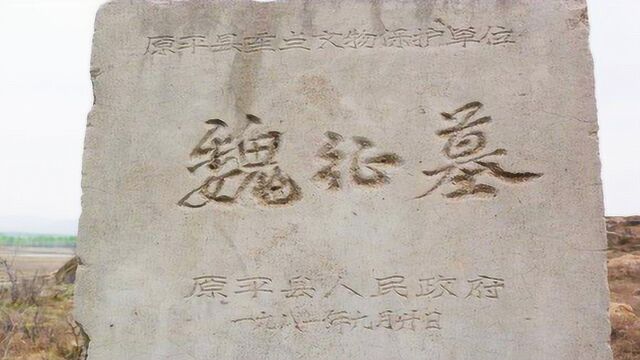 原平县重点文物保护单位
魏征墓
原平县人民政府
一九八一年九月廿日